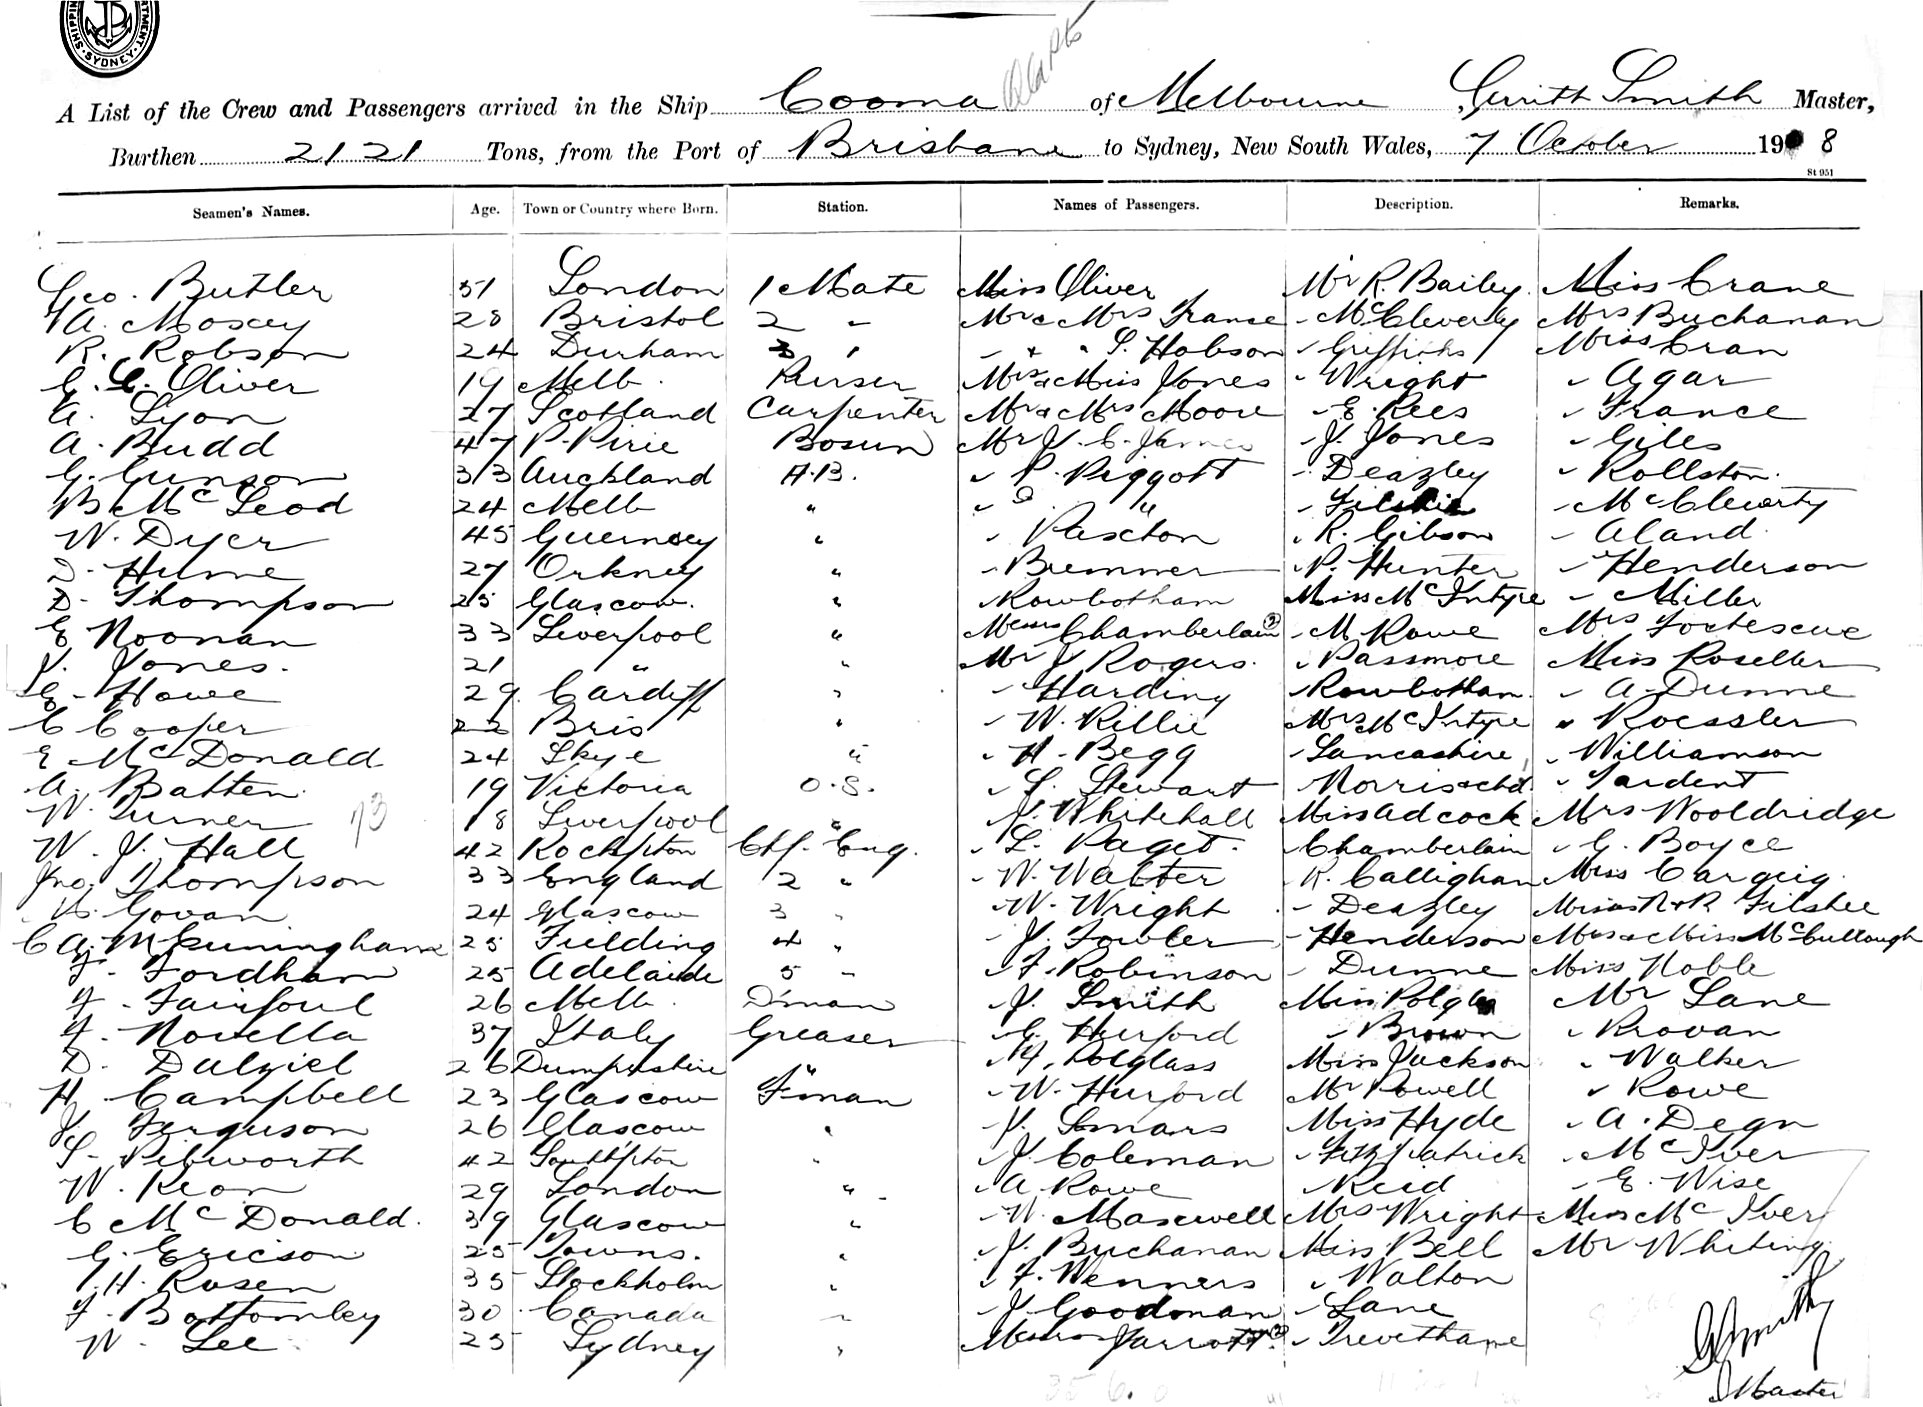 SHIPPING DEPARTMENT. SYDNEY
A List of the Crew and Passengers arrived in the Ship Cooma of Melbourne Gerritt Smith Master,
Burthen 2121 Tons, from the Port of Brisbane to Sydney, New South Wales, 7 October 19 8
St 951
Seamen's Names. Age. Town or Country where Born. Station. Names of Passengers. Description. Remarks.
Geo. Butler 51 London 1 Mate Miss Oliver Mr R. Bailey Miss Crane
A. Moscey 28 Bristol 2 " Mr & Mrs Franse " McCleverty Mrs Buchanan
R. Robson 24 Durham 3 " " & " S. Hobson " Griffiths Miss Cran
G. C. Oliver 19 Melb. Purser Mrs & Miss Jones " Wright " Agar
A. Lyon 27 Scotland Carpenter Mr & Mrs Moore " E. Rees " France
A. Budd 47 P. Pirie Bosun Mr J. C. James " J. Jones " Giles
G. Gunson 33 Auckland A.B. " P. Piggott " Deazley " Rollston.
B McLeod 24 Melb " " " " McClevarty
W. Dyer 45 Guernsey " " Paxton " R. Gibson " Aland
D. Hume 27 Orkney " " Bremner " P. Hunter " Henderson
D. Thompson 25 Glascow. " Rowbotham Miss McIntyre " Miller
E Noonan 33 Liverpool " Messrs Chamberlain (2) " M Rowe Mrs Fortescue
J. Jones. 21 " " Mr J Rogers. " Passmore Miss Roseller
E. Howe 29 Cardiff " " Harding " Rowbotham. " A. Dunne
C Cooper 22 Bris " " W. Killie Mrs McIntyre " Roessler
E McDonald 24 Skye " " H. Begg " Lancashire " Williamson
A. Batten. 19 Victoria O.S. " S. Stewart Norris & chd " Tardent
W. Turner 18 Liverpool " " J. Whitehall Miss Adcock Mrs Wooldridge
73
W. J. Hall 42 Rockpton Chf. Eng. " L. Paget. " Chamberlain " G. Boyce
Jno. Thompson 33 England 2 " " W. Walter " R. Callighan Miss Cargeig.
A. Govan 24 Glascow 3 " " W. Wright " Deazley Misses N & R Filshie
C A. McCuninghame 25 Fielding 4 " " J. Fowler " Henderson Mrs & Miss McCullough
F. Fordham 25 Adelaide 5 " " F. Robinson " Dunne Miss Noble
F. Fairfoul 26 Melb. D'man " J. Smith Miss Mr Lane
F. Novella 37 Italy Greaser " G. Hurford " Brown " Krovan
D. Dalziel 26 Dumfrishire " " H. Polglass Miss Jackson " Walker
H. Campbell 23 Glascow F'man " W. Hurford Mr Powell " Rowe
J. Ferguson 26 Glascow " " J. Smars Miss Hyde " A. Degn
S. Pibworth 42 South'pton " " J. Coleman " Fitzpatrick " McIver
W. Keon 29 London " " A Rowe " Reid " E. Wise
C McDonald. 39 Glascow " " W. Maxwell Mrs Wright Miss McIver
G. Ericson 25 Towns. " " J. Buchanan Miss Bell Mr Whiting
T. H. Rosen 35 Stockholm " " F. Wenners " Walton
F. Bottomley 30 Canada " " J. Goodman " Lane
W. Lee 25 Sydney " Messrs Jarrott (2) " Trevethane
G Smith
Master